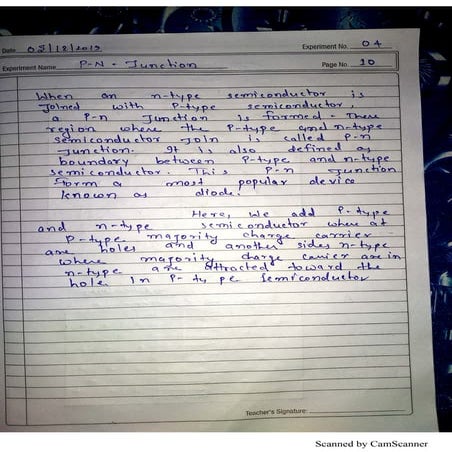 Date 05/12/2019
Experiment No. 04
Experiment Name P-N - Junction
Page No. 10
When an n-type semiconductor is
Joined with P-type semiconductor,
a P-n Junction is formed. There
region where the P-type and n-type
semiconductor Join is called P-n
Junction. It is also defined as
boundary between P-type and n-type
semiconductor. This P-n Junction
form a most popular device
known as diode.
Here, we add P-type
and n-type semiconductor where at
P-type majority charge carrier
are holes and another sides n-type
where majority charge carrier are in
n-type are attracted toward the
hole In P-type semiconductor
Teacher's Signature:
Scanned by CamScanner